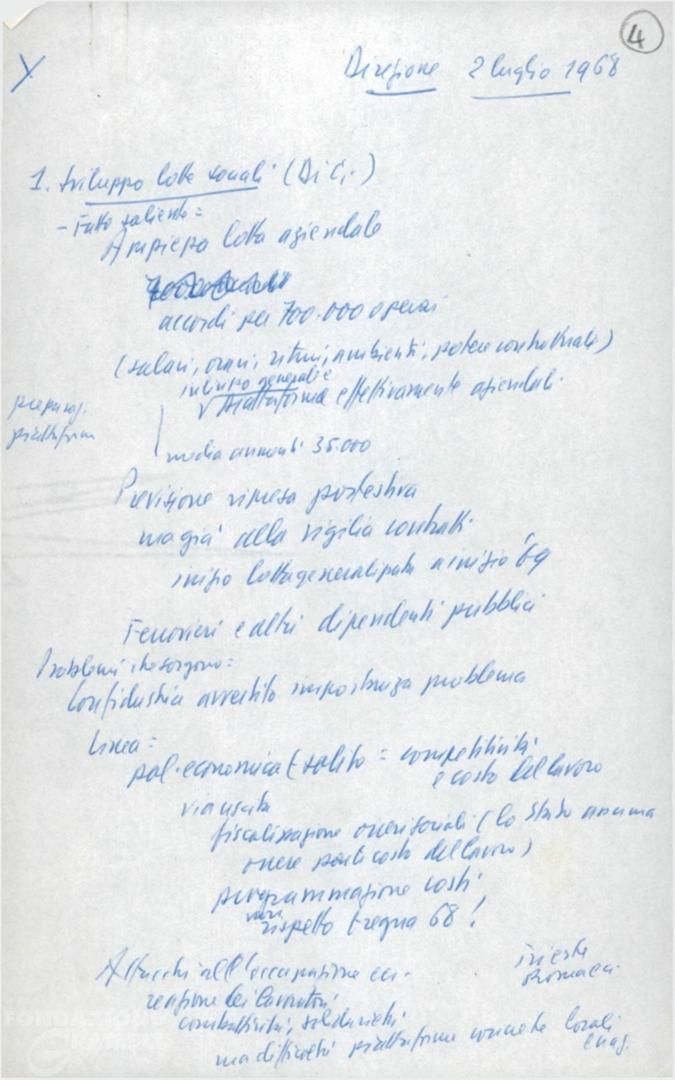 4
Direzione 2 luglio 1968
1. Sviluppo lotte sociali (Di Gi.)
- Fatto saliente =
Ampiezza lotta aziendale
accordi per 700.000 operai
(salari, orari, ritmi, ambienti, potere contrattuale)
generali e
piattaforma effettivamente aziendali
preparaz.
piattaforma
media aumenti 35.000
Previsione ripresa postestiva
ma già alla vigilia contratti
inizio lotta generalizzata a inizio '69
Ferrovieri e altri dipendenti pubblici
Problemi che sorgono =
Confindustria avvertito importanza problema
Linea =
pol. economica (solito = competitività
e costo del lavoro
via uscita
fiscalizzazione oneri sociali (lo Stato assuma
onere parte costo del lavoro)
programmazione costi
rispetto tregua 68!
Attacchi all'occupazione ecc.
Trieste
Roma ecc.
reazione dei lavoratori
combattività, solidarietà
ma difficoltà piattaforme concrete locali
FONDAZIONE
GRAMSCI